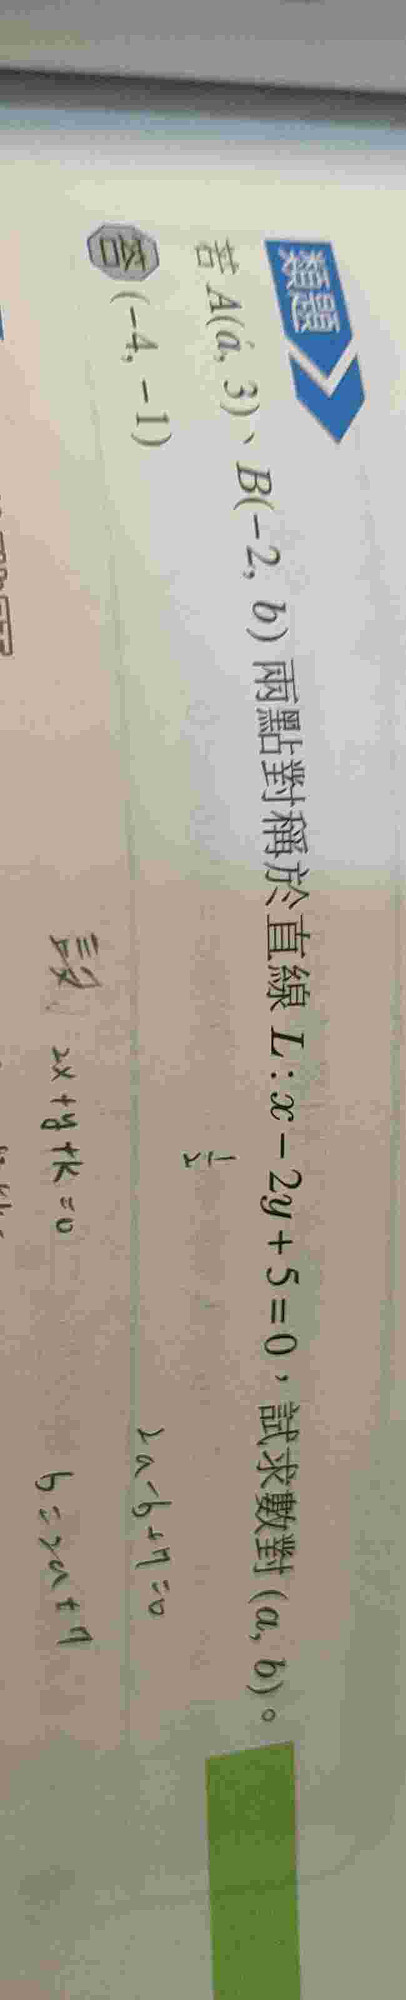 類題
若 A(a, 3)、B(-2, b) 兩點對稱於直線 L : x - 2y + 5 = 0，試求數對 (a, b)。
答 (-4, -1)
1/2
2a-b+7=0
設 2x+y+k=0
b=2a+7